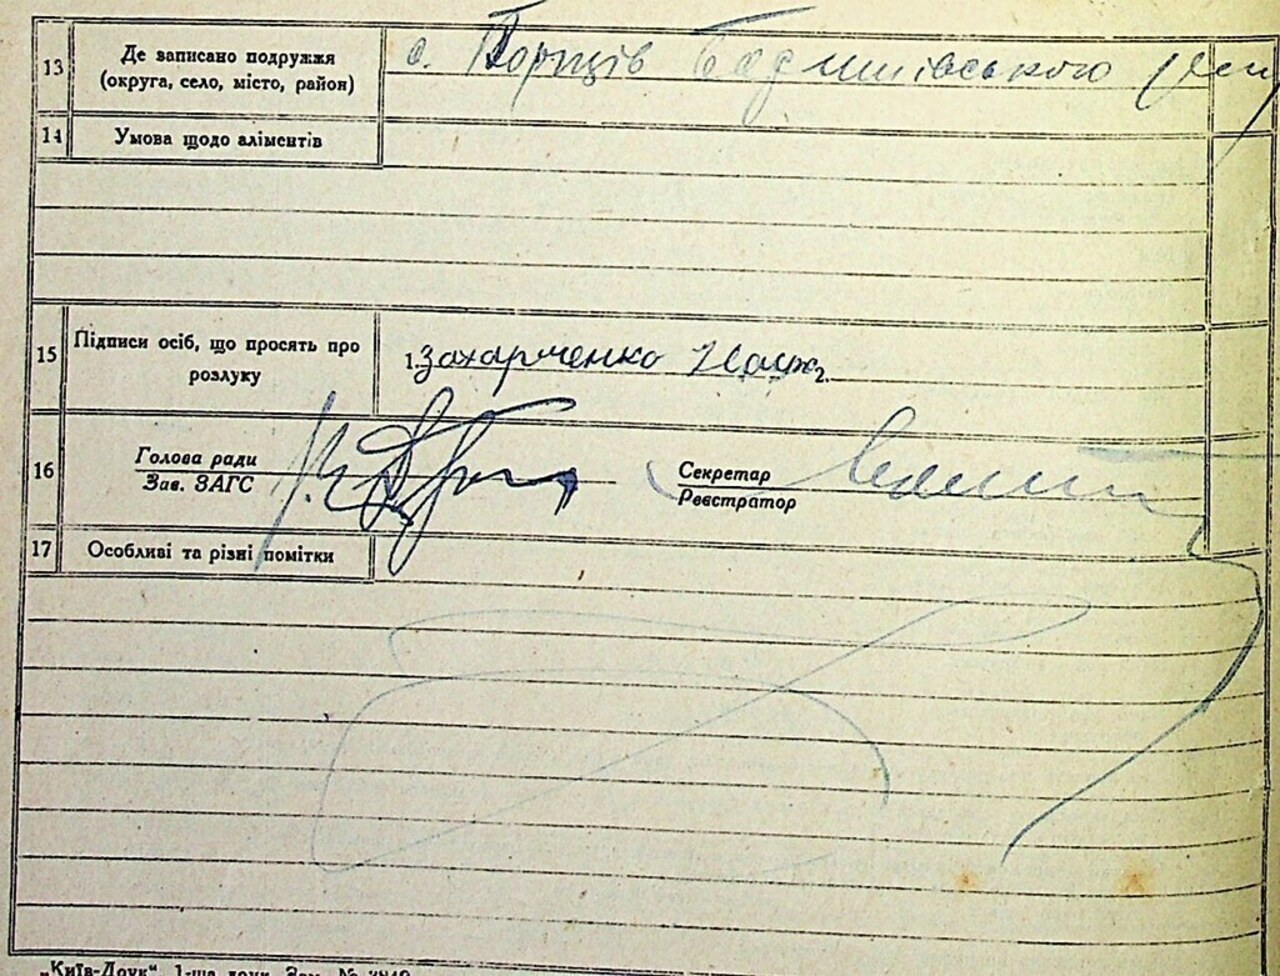 13 Де записано подружжя с. Борщів
(округа, село, місто, район)
14 Умова щодо аліментів
15 Підписи осіб, що просять про 1. Захарченко 2.
розлуку
16 Голова ради Секретар
Зав. ЗАГС Реєстратор
17 Особливі та різні помітки
„Київ-Друк“ 1-ша друк. Зам. №